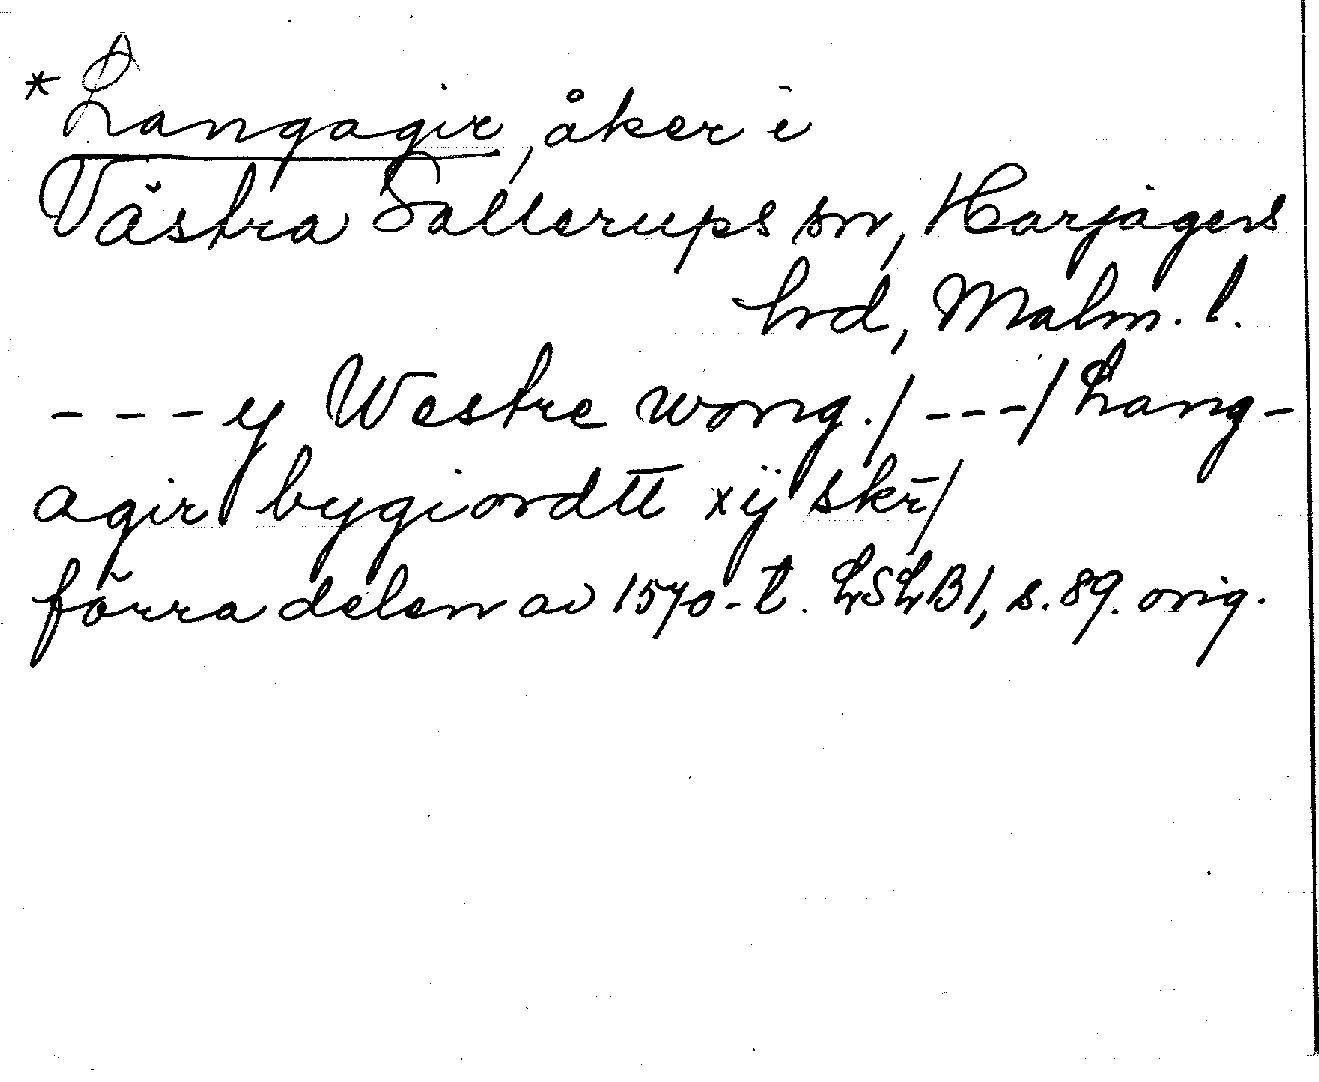 *Langagir, åker i
Västra Sallerups sn, Harjagers
hd, Malm. l.
- - - y Westre wong./ - - -/ Lang-
agir bygiordtt xij skr̄/
förra delen av 1570-t. LSLB1, s. 89. orig.